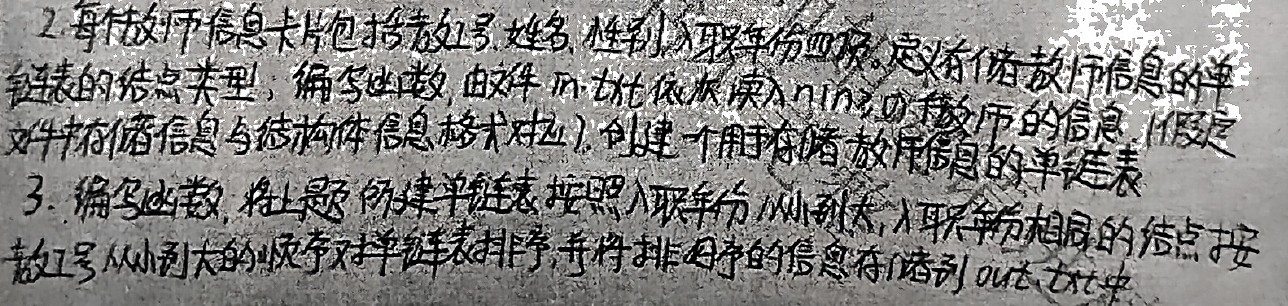 2.每个教师信息卡片包括教工号、姓名、性别、入职年份四项。定义存储教师信息的单
链表的结点类型;编写函数,由文件in.txt依次读入n(n≥0)个教师的信息(假定
文件中存储信息与结构体信息格式对应),创建一个用于存储教师信息的单链表
3.编写函数,将上题所建单链表按照入职年份从小到大,入职年份相同的结点按
教工号从小到大的顺序对单链表排序,并将排好序的信息存储到out.txt中